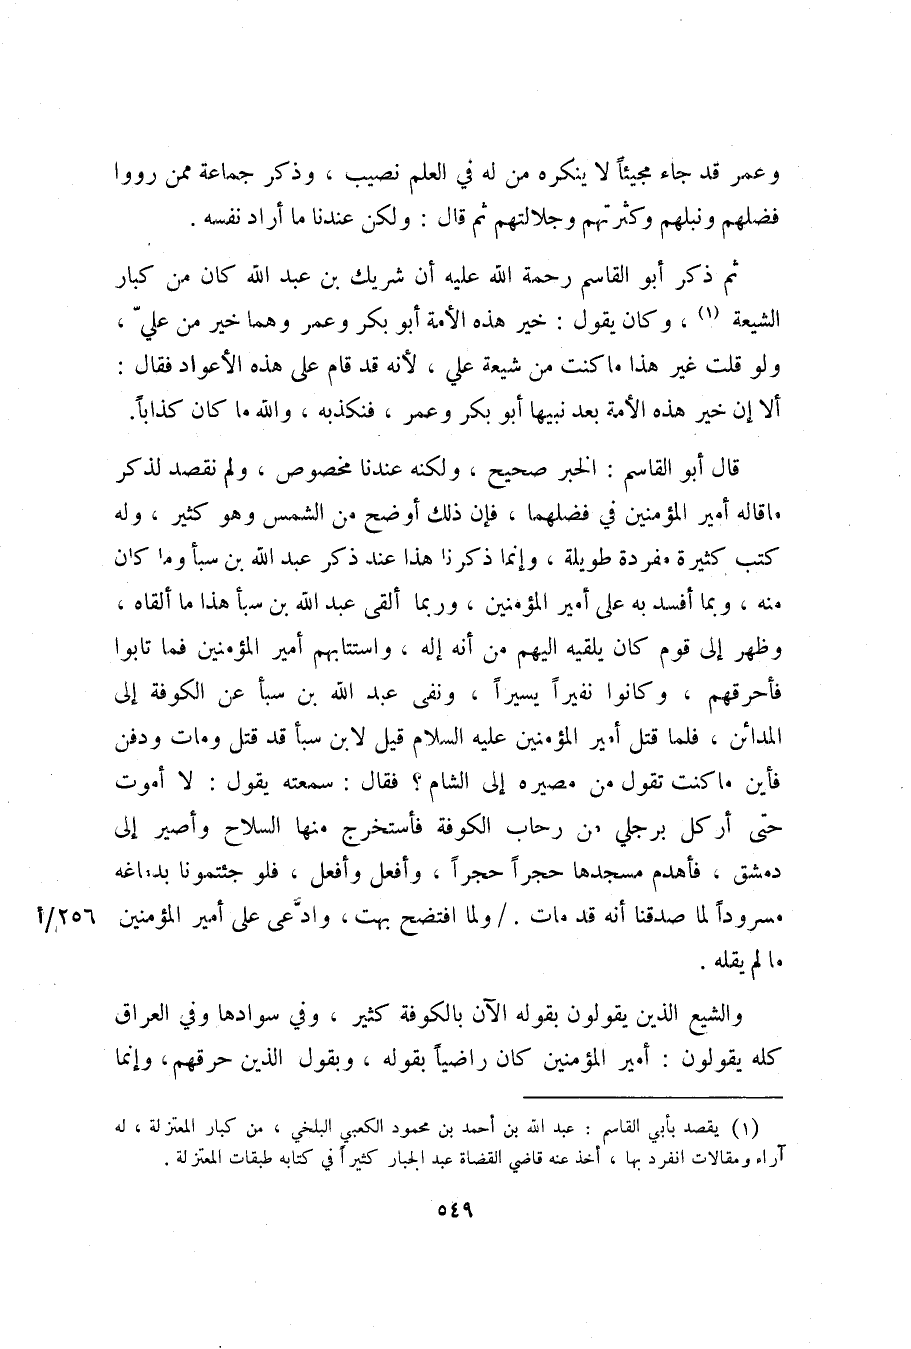 وعمر قد جاء مجيئاً لا ينكره من له في العلم نصيب ، وذكر جماعة ممن رووا
فضلهم ونبلهم وكثرتهم وجلالتهم ثم قال : ولكن عندنا ما أراد نفسه .
ثم ذكر أبو القاسم رحمة الله عليه أن شريك بن عبد الله كان من كبار
الشيعة (١) ، وكان يقول : خير هذه الأمة أبو بكر وعمر وهما خير من عليّ ،
ولو قلت غير هذا ماكنت من شيعة علي ، لأنه قد قام على هذه الأعواد فقال :
ألا إن خير هذه الأمة بعد نبيها أبو بكر وعمر ، فنكذبه ، والله ما كان كذاباً.
قال أبو القاسم : الخبر صحيح ، ولكنه عندنا مخصوص ، ولم نقصد لذكر
ماقاله أمير المؤمنين في فضلهما ، فإن ذلك أوضح من الشمس وهو كثير ، وله
كتب كثيرة مفردة طويلة ، وإنما ذكرنا هذا عند ذكر عبد الله بن سبأ وما كان
منه ، وبما أفسد به على أمير المؤمنين ، وربما ألقى عبد الله بن سبأ هذا ما ألقاه ،
وظهر إلى قوم كان يلقيه اليهم من أنه إله ، واستتابهم أمير المؤمنين فما تابوا
فأحرقهم ، وكانوا نفيراً يسيراً ، ونفى عبد الله بن سبأ عن الكوفة إلى
المدائن ، فلما قتل أمير المؤمنين عليه السلام قيل لابن سبأ قد قتل ومات ودفن
فأين ماكنت تقول من مصيره إلى الشام ؟ فقال : سمعته يقول : لا أموت
حتى أركل برجلي من رحاب الكوفة فأستخرج منها السلاح وأصير إلى
دمشق ، فأهدم مسجدها حجراً حجراً ، وأفعل وأفعل ، فلو جئتمونا بدماغه
مسروداً لما صدقنا أنه قد مات . / ولما افتضح بهت ، وادَّعى على أمير المؤمنين ٢٥٦/أ
ما لم يقله .
والشيع الذين يقولون بقوله الآن بالكوفة كثير ، وفي سوادها وفي العراق
كله يقولون : أمير المؤمنين كان راضياً بقوله ، وبقول الذين حرقهم، وإنما
(١) يقصد بأبي القاسم : عبد الله بن أحمد بن محمود الكعبي البلخي ، من كبار المعتزلة ، له
آراء ومقالات انفرد بها ، أخذ عنه قاضي القضاة عبد الجبار كثيراً في كتابه طبقات المعتزلة .
٥٤٩